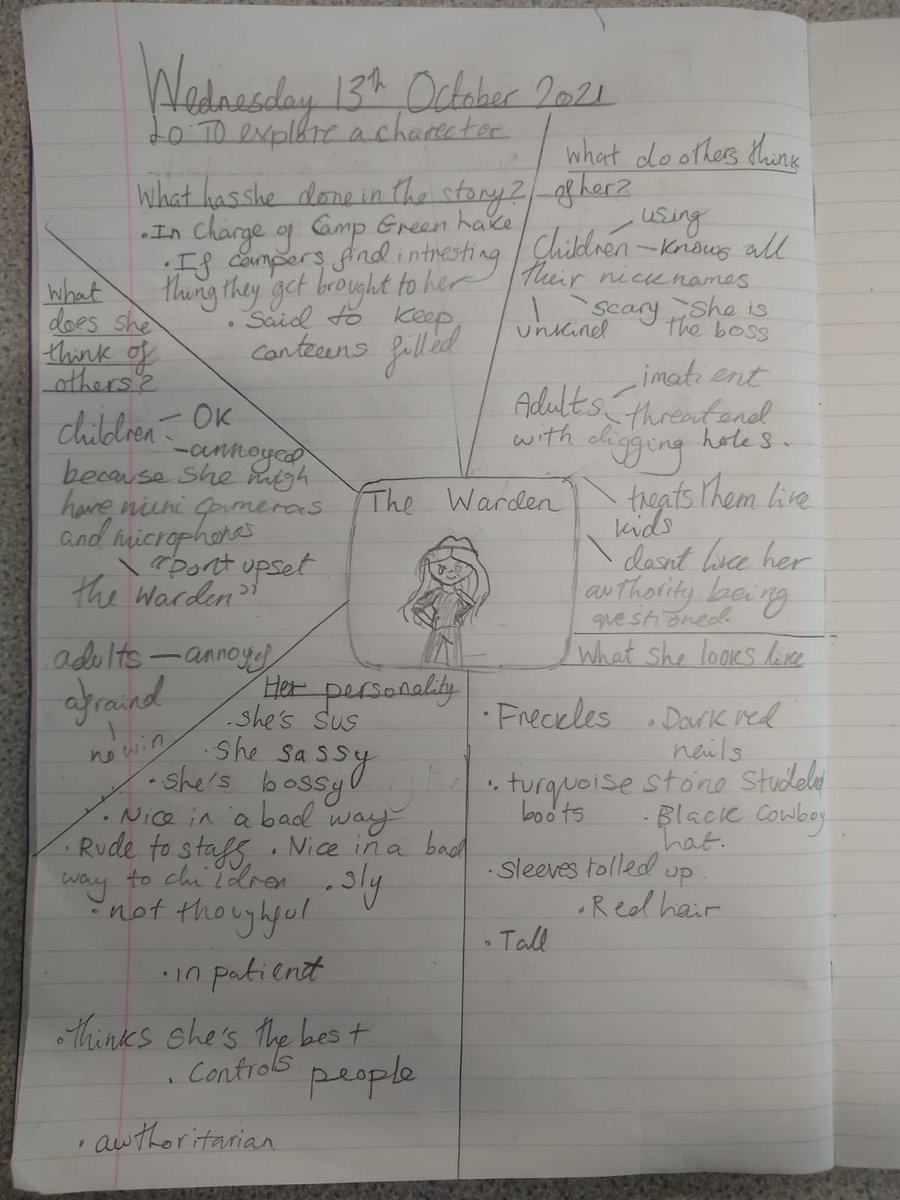 Wednesday 13th October 2021
LO: TO explore a charecter
What has she done in the story?
• In Charge of Camp Green Lake
• If campers find intresting
thing they get brought to her
• Said to keep
canteens filled
What do others think
of her?
using
Children – Knows all
their nicknames
scary She is
unkind the boss
imatient
Adults threatend
with digging holes.
treats them like
kids
dasnt like her
authority being
questioned.
What
does she
think of
others?
children – OK
– annoyed
because she migh
have mini cameras
and microphones
"Don't upset
the Warden"
adults – annoyed
afraind
no win
The Warden
Her personality
• She's sus
• She sassy
• She's bossy
• Nice in a bad way
• Rude to staff • Nice in a bad
way to children • sly
• not thoughful
• in patient
• thinks she's the best
• Controls people
• authoritarian
What she looks like
• Freckles • Dark red
nails
• turquoise stone studded
boots • Black cowboy
hat.
• sleeves rolled up
• Red hair
• Tall